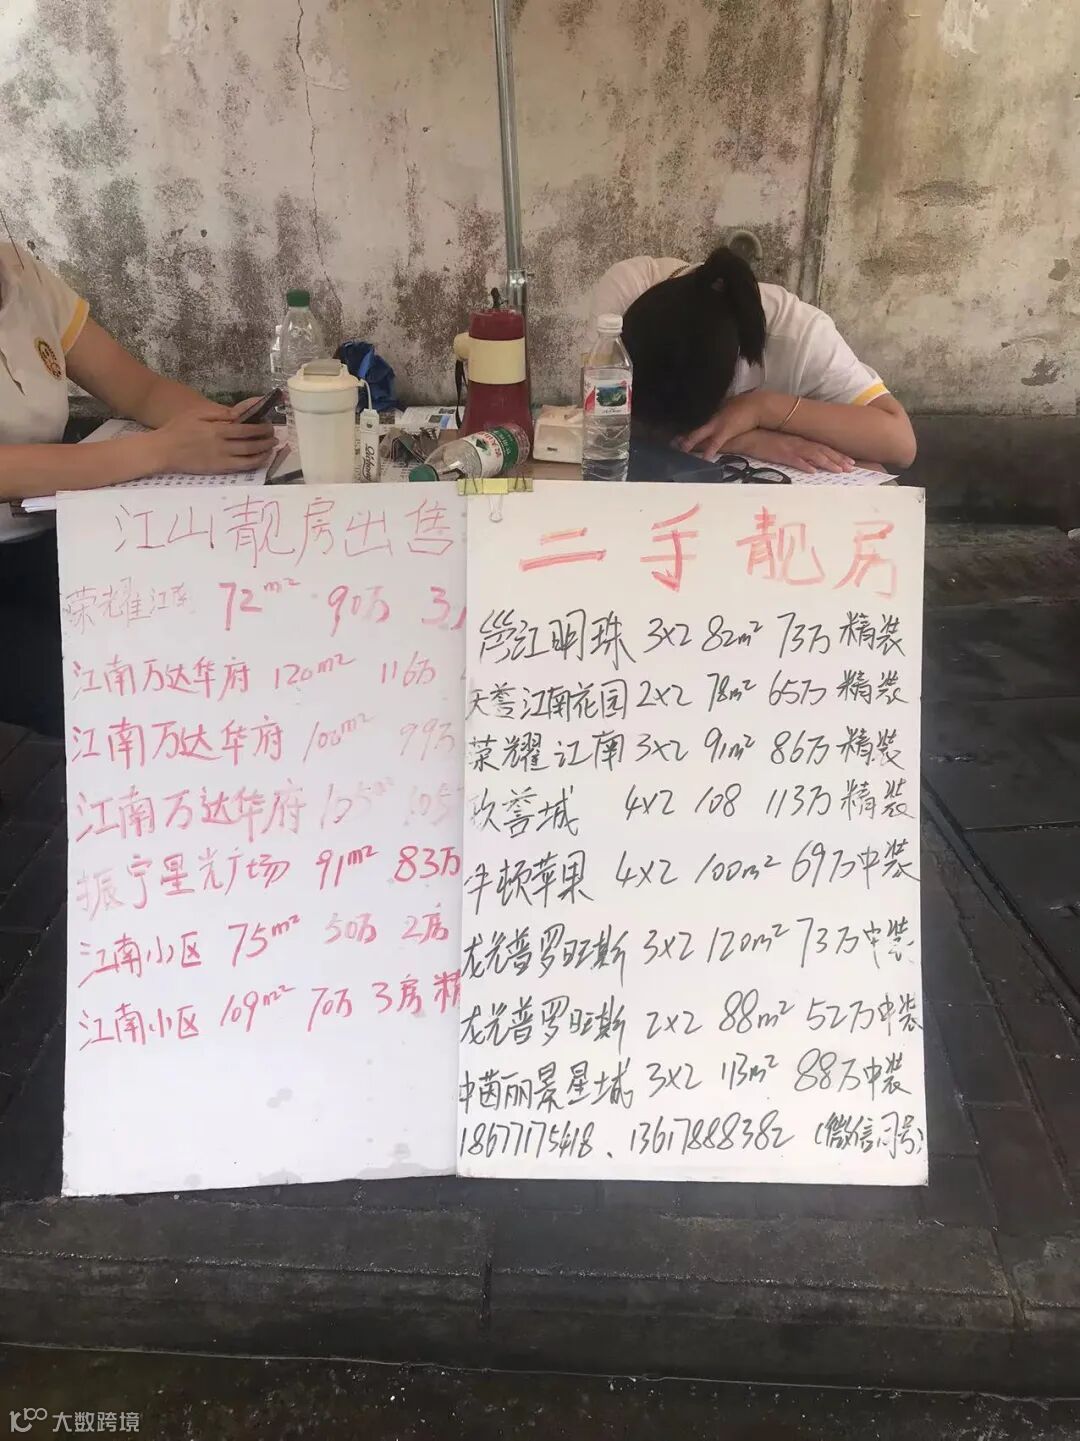 江山靓房出售
荣耀江南 72m² 90万 3
江南万达华府 120m² 116万
江南万达华府 100m² 99万
江南万达华府 105
振宁星光广场 91m² 83万
江南小区 75m² 50万 2房
江南小区 109m² 70万 3房 精
二手靓房
邕江明珠 3×2 82m² 73万 精装
天誉江南花园 2×2 78m² 65万 精装
荣耀江南 3×2 91m² 86万 精装
誉城 4×2 108 113万 精装
牛顿苹果 4×2 100m² 69万 中装
龙光普罗旺斯 3×2 120m² 73万 中装
龙光普罗旺斯 2×2 88m² 52万 中装
中茵丽景星城 3×2 113m² 88万 中装
18677175418、13617888382 (微信同号)
大数跨境